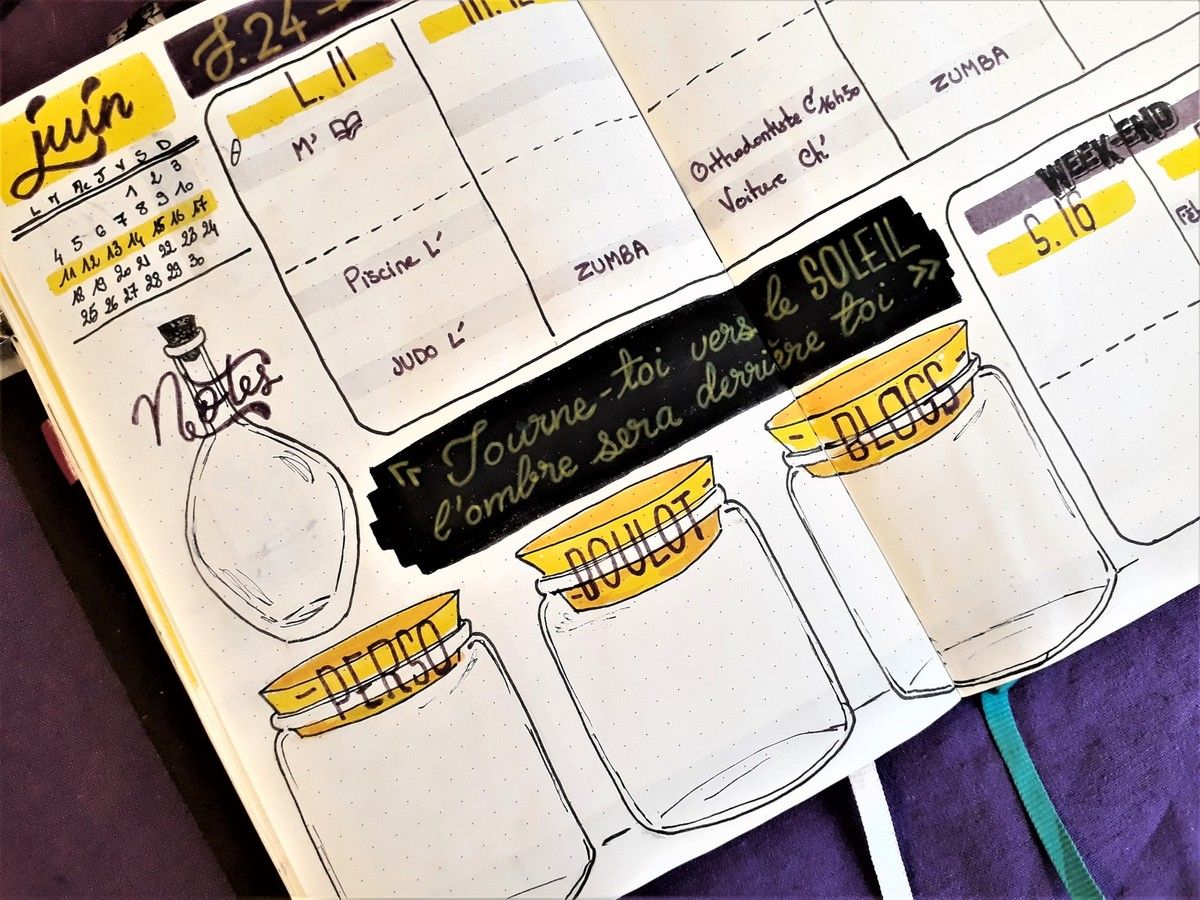 juin
S.24 →
L M Me J V S D
1 2 3
4 5 6 7 8 9 10
11 12 13 14 15 16 17
18 19 20 21 22 23 24
25 26 27 28 29 30
Notes
L. 11
M'
Piscine L'
JUDO L'
ZUMBA
Orthodontiste C' 16h50
Voiture Ch'
ZUMBA
WEEK-END
S. 16
« Tourne-toi vers le SOLEIL
l'ombre sera derrière toi »
- PERSO -
- BOULOT -
- BLOGS -